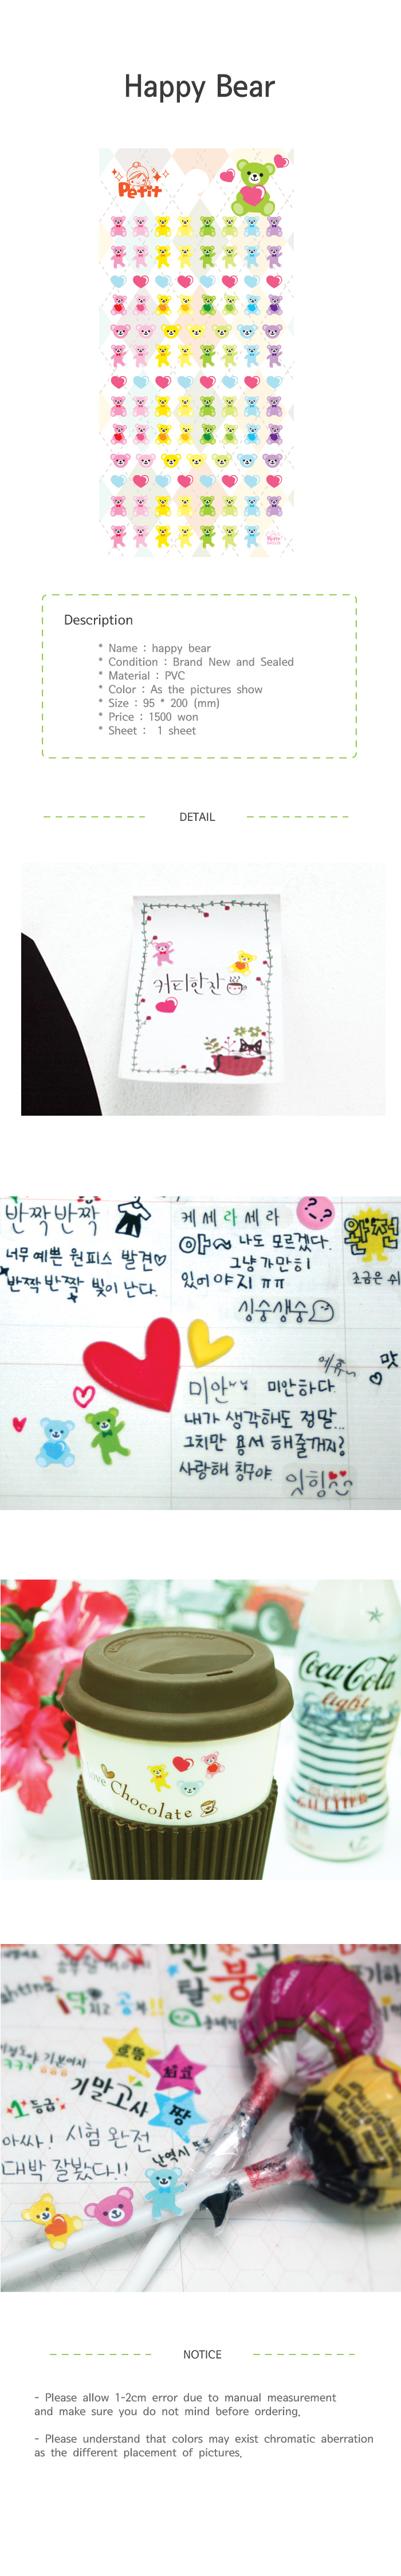 Happy Bear
Petit
Description
* Name : happy bear
* Condition : Brand New and Sealed
* Material : PVC
* Color : As the pictures show
* Size : 95 * 200 (mm)
* Price : 1500 won
* Sheet : 1 sheet
DETAIL
커피한잔
반짝반짝
너무 예쁜 원피스 발견♡
반짝반짝 빛이 난다.
케세라세라
나도 모르겠다.
그냥 가만히
있어야지 ㅠㅠ
싱숭생숭
완전
조금은 쉬
맛
미안 미안하다.
내가 생각해도 정말...
그치만 용서 해줄꺼지?
사랑해 칭구야.
Love Chocolate
Coca-Cola
light
으뜸
최고
짱
기말고사
1등급
아싸! 시험 완전
대박 잘봤다!!
난역시
NOTICE
- Please allow 1-2cm error due to manual measurement
and make sure you do not mind before ordering.
- Please understand that colors may exist chromatic aberration
as the different placement of pictures.